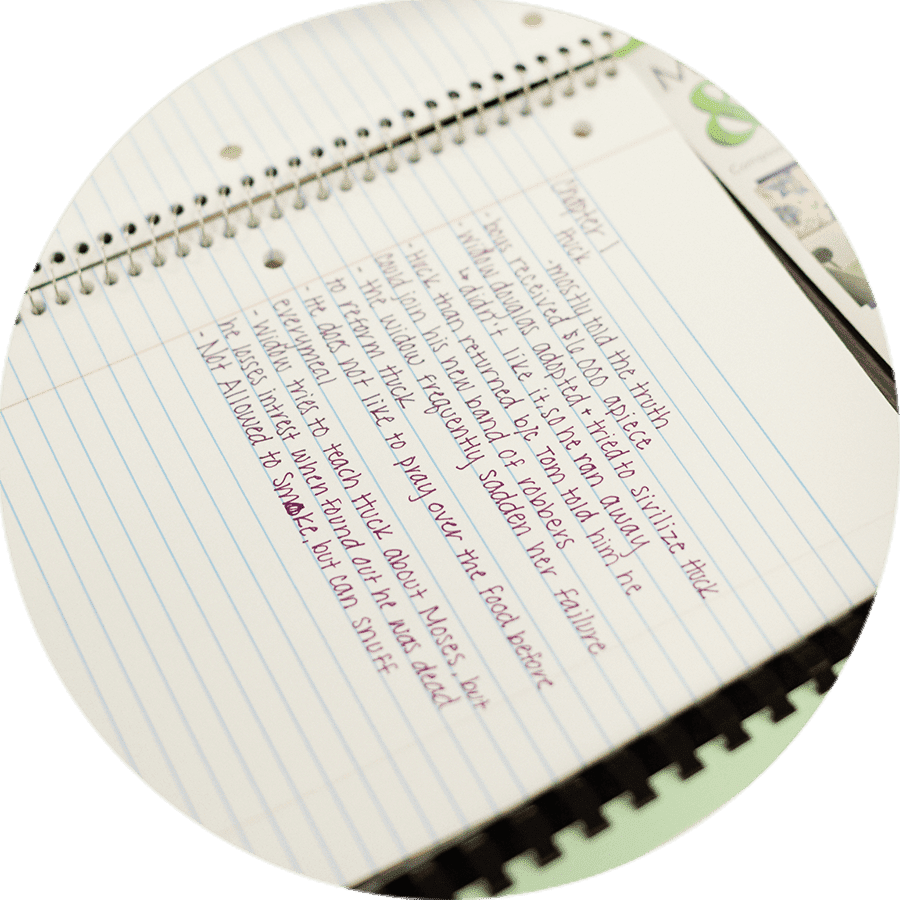 Chapter 1
Huck -mostly told the truth
- boys received $6,000 apiece
- widow douglas adopted + tried to sivilize Huck
↳ didn't like it, so he ran away
- Huck than returned b/c Tom told him he
could join his new band of robbers
- the widow frequently sadden her failure
to reform Huck
He does not like to pray over the food before
everymeal
- Widow tries to teach Huck about Moses, but
he losses intrest when found out he was dead
- Not Allowed to Smoke, but can snuff
M
&